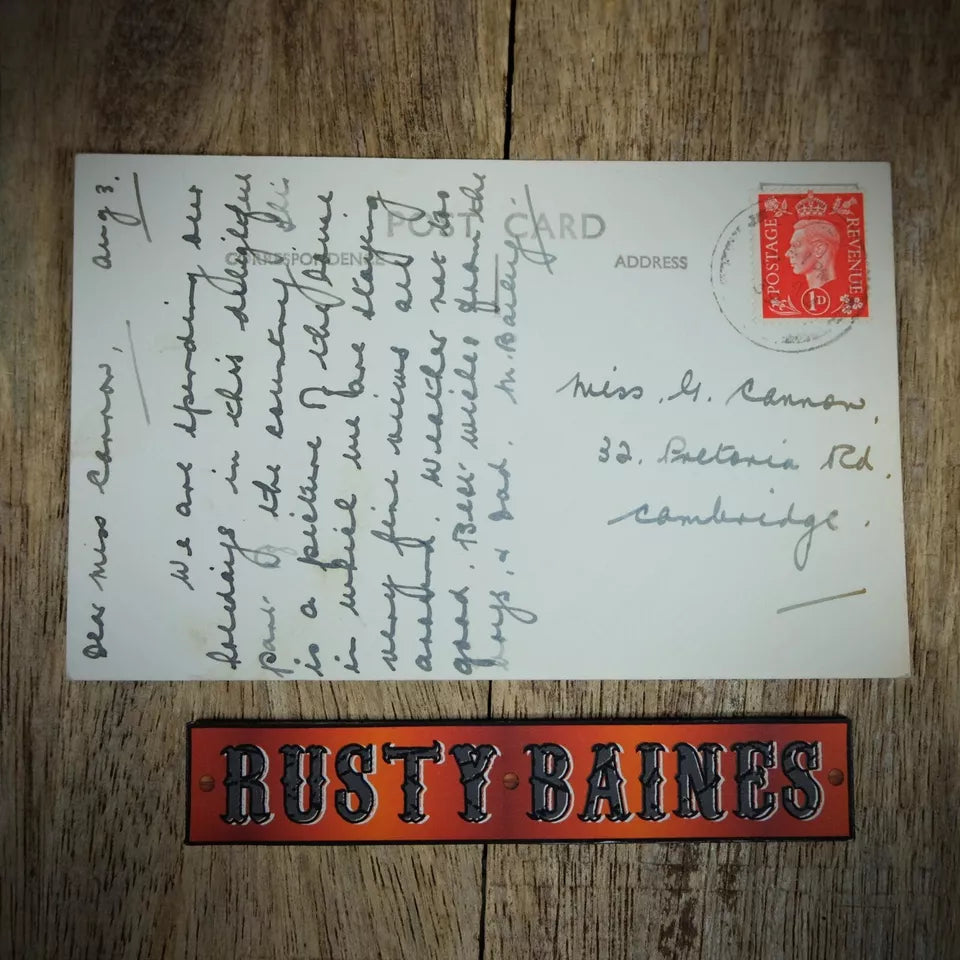 POST CARD
CORRESPONDENCE
ADDRESS
POSTAGE REVENUE
1D
Aug 3.
Dear Miss Cannon,
We are spending our
holidays in this delightful
part of the country. This
is a picture of the house
in which we are staying
very fine views all
around. Weather not too
good. Best wishes from the
boys, & Dad. M. Bailey
Miss. G. Cannon.
32. Pretoria Rd.
Cambridge.
RUSTY BAINES